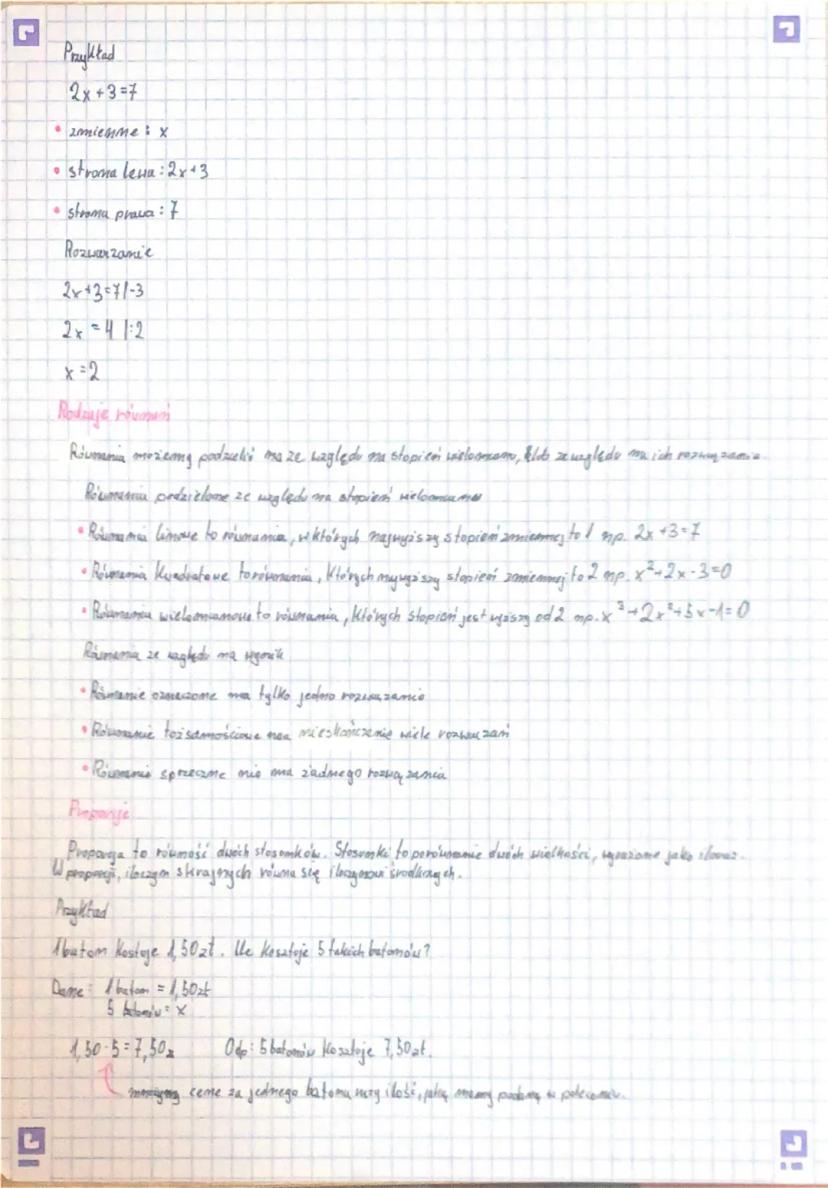 Przykład
2x+3=7
• zmienne: x
• strona lewa: 2x+3
• strona prawa: 7
Rozwiązanie
2x+3=7/-3
2x=4 |:2
x=2
Rodzaje równań
Równania możemy podzielić na ze względu na stopień wielomianu, lub ze względu na ich rozwiązania.
Równania podzielone ze względu na stopień wielomianu
• Równania liniowe to równania, w których najwyższy stopień zmiennej to 1 np. 2x+3=7
• Równania kwadratowe to równania, których najwyższy stopień zmiennej to 2 np. x²+2x-3=0
• Równania wielomianowe to równania, których stopień jest wyższy od 2 np. x³+2x²+5x-1=0
Równania ze względu na wynik
• Równanie oznaczone ma tylko jedno rozwiązanie
• Równanie tożsamościowe ma nieskończenie wiele rozwiązań
• Równanie sprzeczne nie ma żadnego rozwiązania
Proporcje
Proporcja to równość dwóch stosunków. Stosunki to porównanie dwóch wielkości, wyrażone jako iloraz.
W proporcji, iloczyn skrajnych równa się iloczynowi środkowych.
Przykład
1 baton kosztuje 1,50zł. Ile kosztuje 5 takich batonów?
Dane: 1 baton = 1,50zł
5 batonów = x
1,50·5=7,50 Odp: 5 batonów kosztuje 7,50zł.
mnożymy cenę za jednego batona razy ilość, jaką mamy podaną w poleceniu.